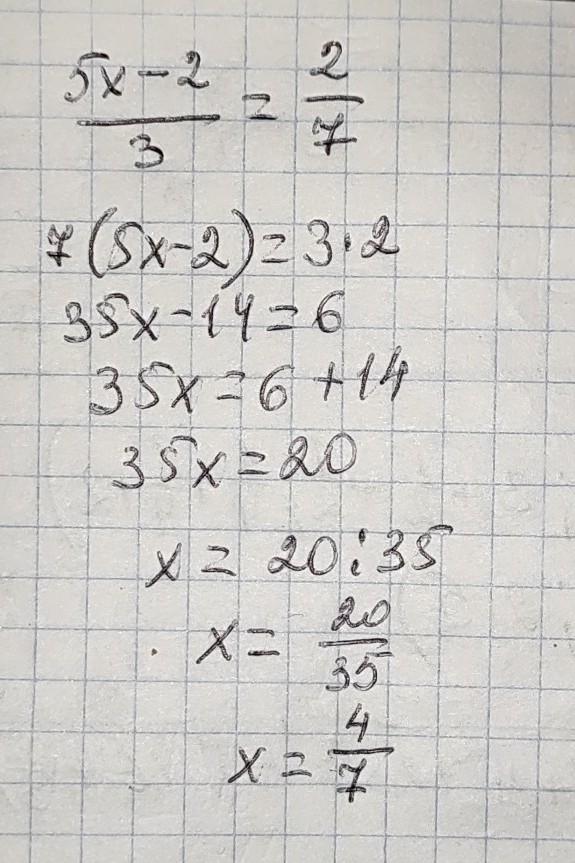 5x-2/3 = 2/7
7(5x-2)=3·2
35x-14=6
35x=6+14
35x=20
x=20:35
x=20/35
x=4/7